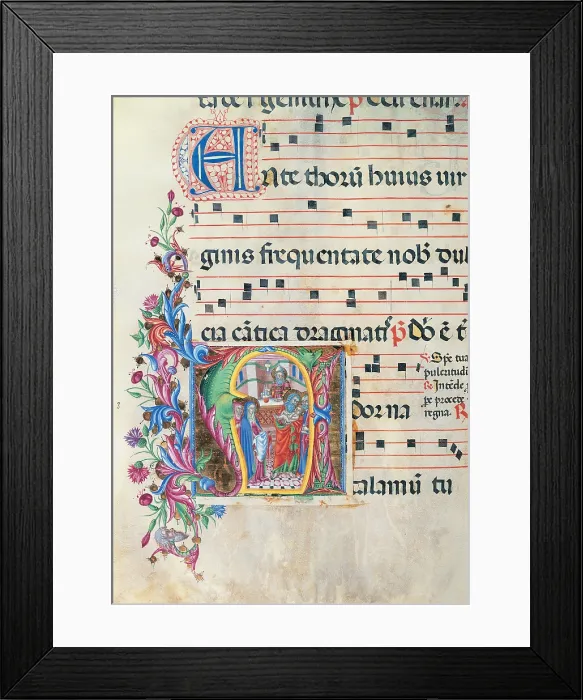 Ante thorū huius uir
ginis frequentate nob̄ dul
cia cātica dragmatiſ
Spe tua
pulcritudi
Intēde
ꝓcede
regna.
Adorna
talamū tu